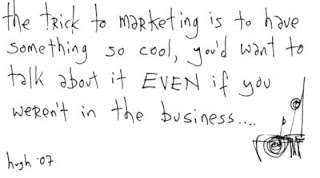 the trick to marketing is to have
something so cool, you'd want to
talk about it EVEN if you
weren't in the business....
hugh '07